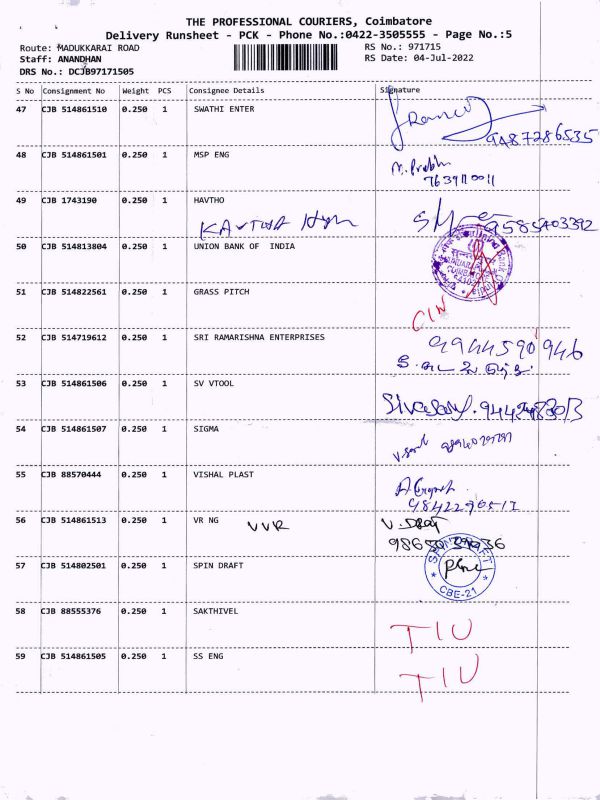 THE PROFESSIONAL COURIERS, Coimbatore
Delivery Runsheet - PCK - Phone No.:0422-3505555 - Page No.:5
Route: MADUKKARAI ROAD RS No.: 971715
Staff: ANANDHAN RS Date: 04-Jul-2022
DRS No.: DCJB97171505
S No Consignment No Weight PCS Consignee Details Signature
47 CJB 514861510 0.250 1 SWATHI ENTER
9487286535
48 CJB 514861501 0.250 1 MSP ENG M. Prabhu
49 CJB 1743190 0.250 1 HAVTHO
9585403392
50 CJB 514813804 0.250 1 UNION BANK OF INDIA
51 CJB 514822561 0.250 1 GRASS PITCH CIN
52 CJB 514719612 0.250 1 SRI RAMARISHNA ENTERPRISES 9944590946
53 CJB 514861506 0.250 1 SV VTOOL
54 CJB 514861507 0.250 1 SIGMA
55 CJB 88570444 0.250 1 VISHAL PLAST
56 CJB 514861513 0.250 1 VR NG VVR
57 CJB 514802501 0.250 1 SPIN DRAFT
CBE-21
58 CJB 88555376 0.250 1 SAKTHIVEL TIU
59 CJB 514861505 0.250 1 SS ENG TIU